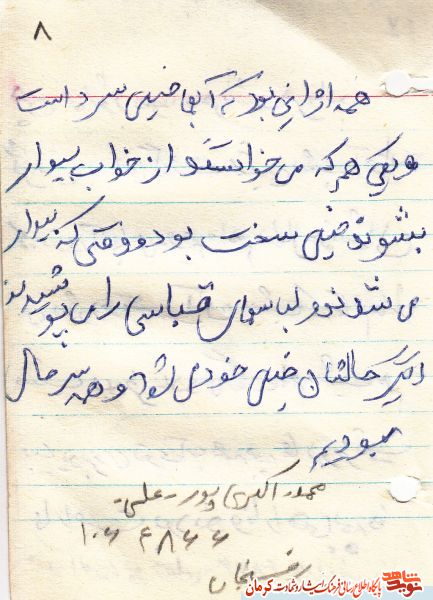 ۸
همه اش این بود که آنجا خیلی سرد است
وقتی هم که می خواستند از خواب بیدار
بشوند خیلی سخت بود و وقتی که بیدار
می شدند و لباسهای را می پوشیدند
دیگر حالتشان خیلی خودی و همه سر حال
میبودیم
اکبری پور - علی -
رفسنجان
نوید شاهد پایگاه اطلاع رسانی فرهنگ ایثار و شهادت کرمان